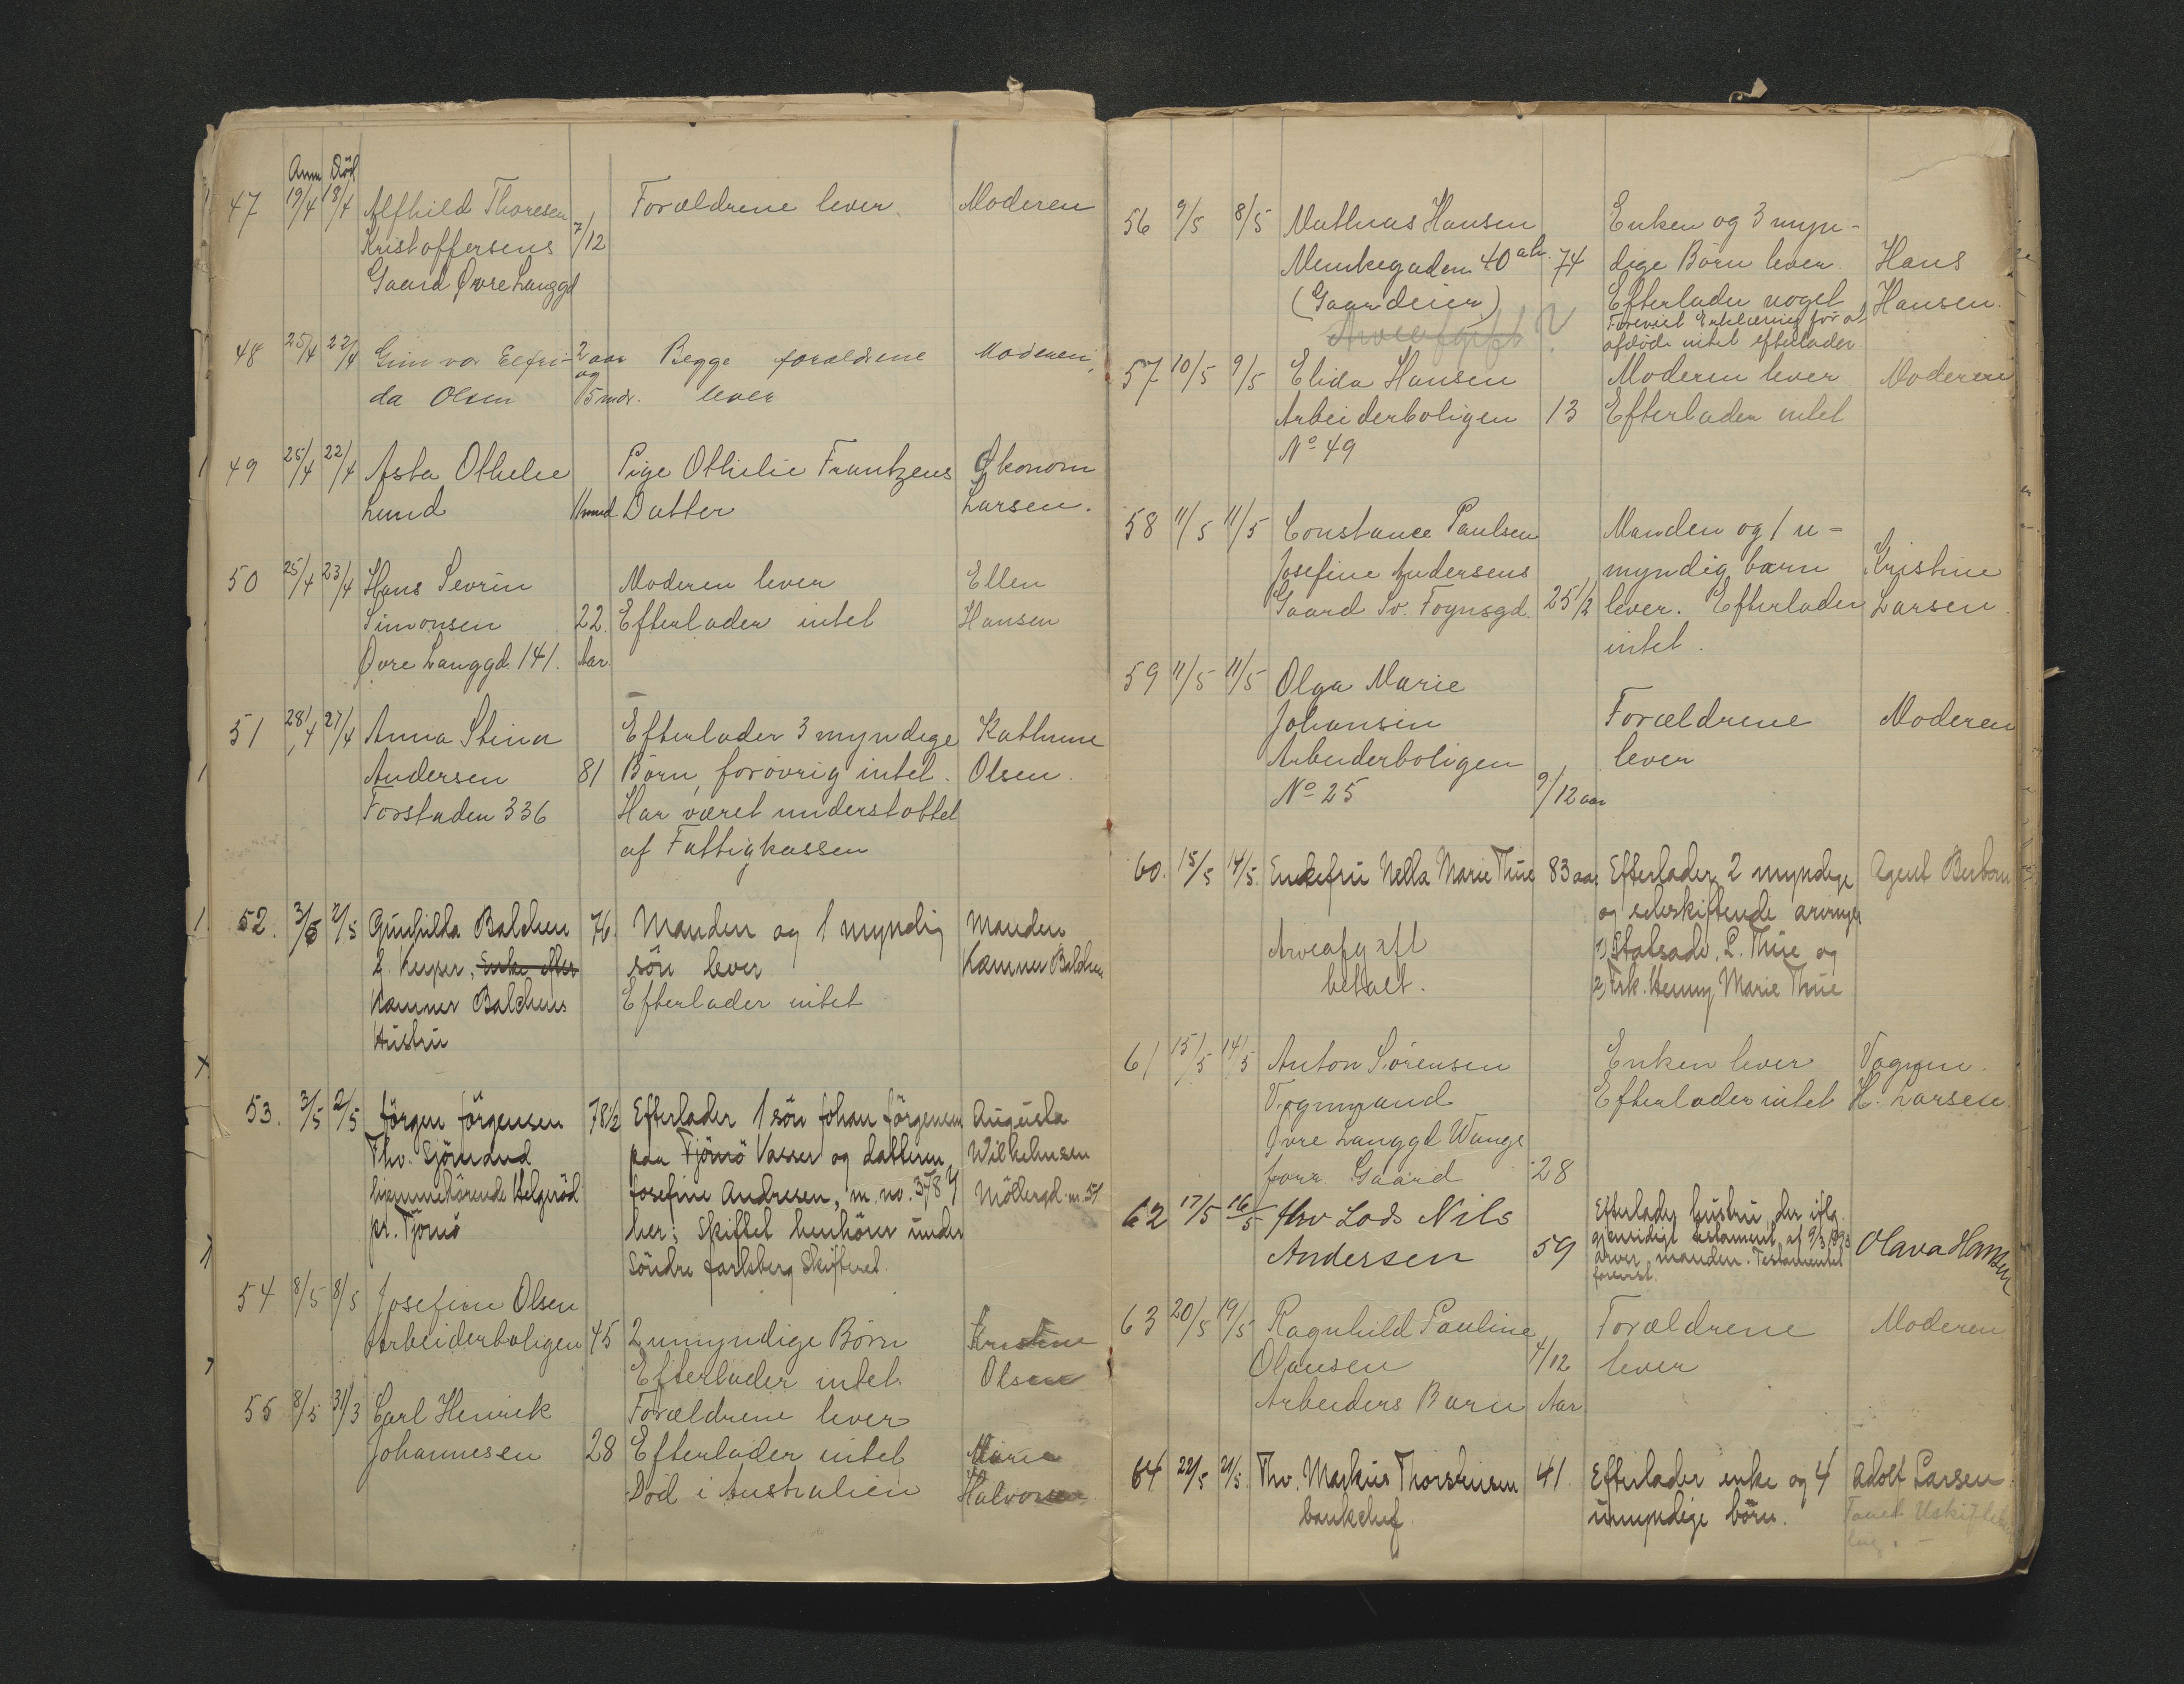 Anm Död
47 19/4 18/4 Alfhild Thoresen Forældrene lever. Moderen
Kristoffersens 7/12
Gaard Øvre Langgd
48 25/4 22/4 Gunvor Elfri- 2 aar Begge forældrene Moderen
da Olsen og 5 mdr. lever
49 25/4 22/4 Asta Othelie Pige Othilie Frantzens Økonom
Lund 11 mnd Datter Larsen.
50 25/4 23/4 Hans Sevrin Moderen lever Ellen
Simonsen 22 Efterlader intet Hansen
Øvre Langgd. 141. Aar.
51 28/4 27/4 Anna Stina Efterlader 3 myndige Kathrine
Andersen 81 Börn, forövrig intet. Olsen.
Forstaden 336 Har været understöttet
af Fattigkassen
52. 3/5 2/5 Gunhilda Balchen 76. Manden og 1 myndig Manden
f. Keyser, Enke efter sön lever Kæmner Balchen
Kæmner Balchens Efterlader intet
Hustru
53. 3/5 2/5 Jörgen Jörgensen 78 1/2 Efterlader 1 sön Johan Jörgensen Augusta
Fhv. Sjömand paa Tjömö Vasser og datteren Wilhelmsen
hjemmehörende Helgeröd Josefine Andresen, m. no. 378 Y Möllergd. m. 51
pr. Tjömö her; Skiftet henhörer under
Söndre Jarlsberg Skifteret.
54 8/5 8/5 Josefine Olsen
Arbeiderboligen 45 2 umyndige Börn Kristine
Efterlader intet. Olsen
55 8/5 31/3 Carl Henrik Forældrene lever
Johannesen 28 Efterlader intet Marie
Död i Australien Halvorsen
56 9/5 8/5 Mathias Hansen Enken og 3 myn-
Munkegaden 40 alv. 74 dige Börn lever. Hans
(Gaardeier) Efterlader noget Hansen.
Arveafgift Forevist Erklæring for at
afdöde intet efterlader.
57 10/5 9/5 Elida Hansen Moderen lever Moderen
Arbeiderboligen 13 Efterlader intet
No 49
58 11/5 11/5 Constance Paulsen Manden og 1 u-
Josefine Andersens myndig barn Kristine
Gaard Sv. Foynsgd. 25 1/2 lever. Efterlader Larsen.
intet.
59 11/5 11/5 Olga Marie
Johansen Forældrene Moderen
Arbeiderboligen lever
No 25 9/12 aar
60. 15/5 14/5. Enkefru Nella Marie Thue 83 aar Efterlader 2 myndige Agent Berbom
og selvskiftende arvinger
Arveafgift 1) Statsadv. L. Thue og
betalt. 2) Frk. Henny Marie Thue
61 15/5 14/5 Anton Sörensen Enken lever Vognm.
Vognmand Efterlader intet H. Larsen.
Øvre Langgd Wangs
Gaard 28
62 17/5 16/5 fhv Lods Nils Efterlader hustru, der iflg.
gjensidigt testament af 9/3 1893
Andersen 59 arver manden. Testamentet Olava Hansen
forevist.
63 20/5 19/5 Ragnhild Pauline Forældrene Moderen
Olausen 4/12 lever
Arbeiders Barn Aar
64 22/5 21/5. Fhv. Markus Thorstensen 41. Efterlader enke og 4 Adolf Larsen.
bankchef umyndige börn.